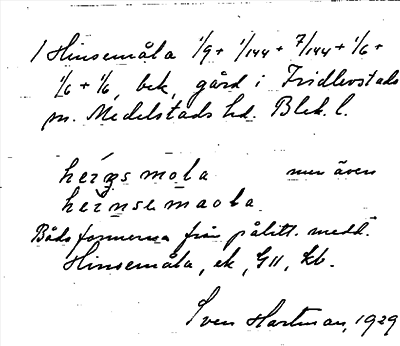 1 Hinsemåla 1/9 + 1/144 + 7/144 + 1/6 +
1/6 + 1/6, bek, gård i Fridlevstads
sn. Medelstads hd. Blek. l.
hé́rnsmola mer även
hernsemaola
Båda formerna från pålitl. medd.
Hinsemåla, ek, G11, Kb.
Sven Hartman, 1929